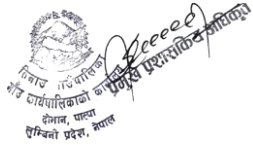 तिनाउ गाउँपालिका
गाँउ कार्यपालिकाको कार्यालय
दोभान, पाल्पा
लुम्बिनी प्रदेश, नेपाल
प्रमुख प्रशासकिय अधिकृत